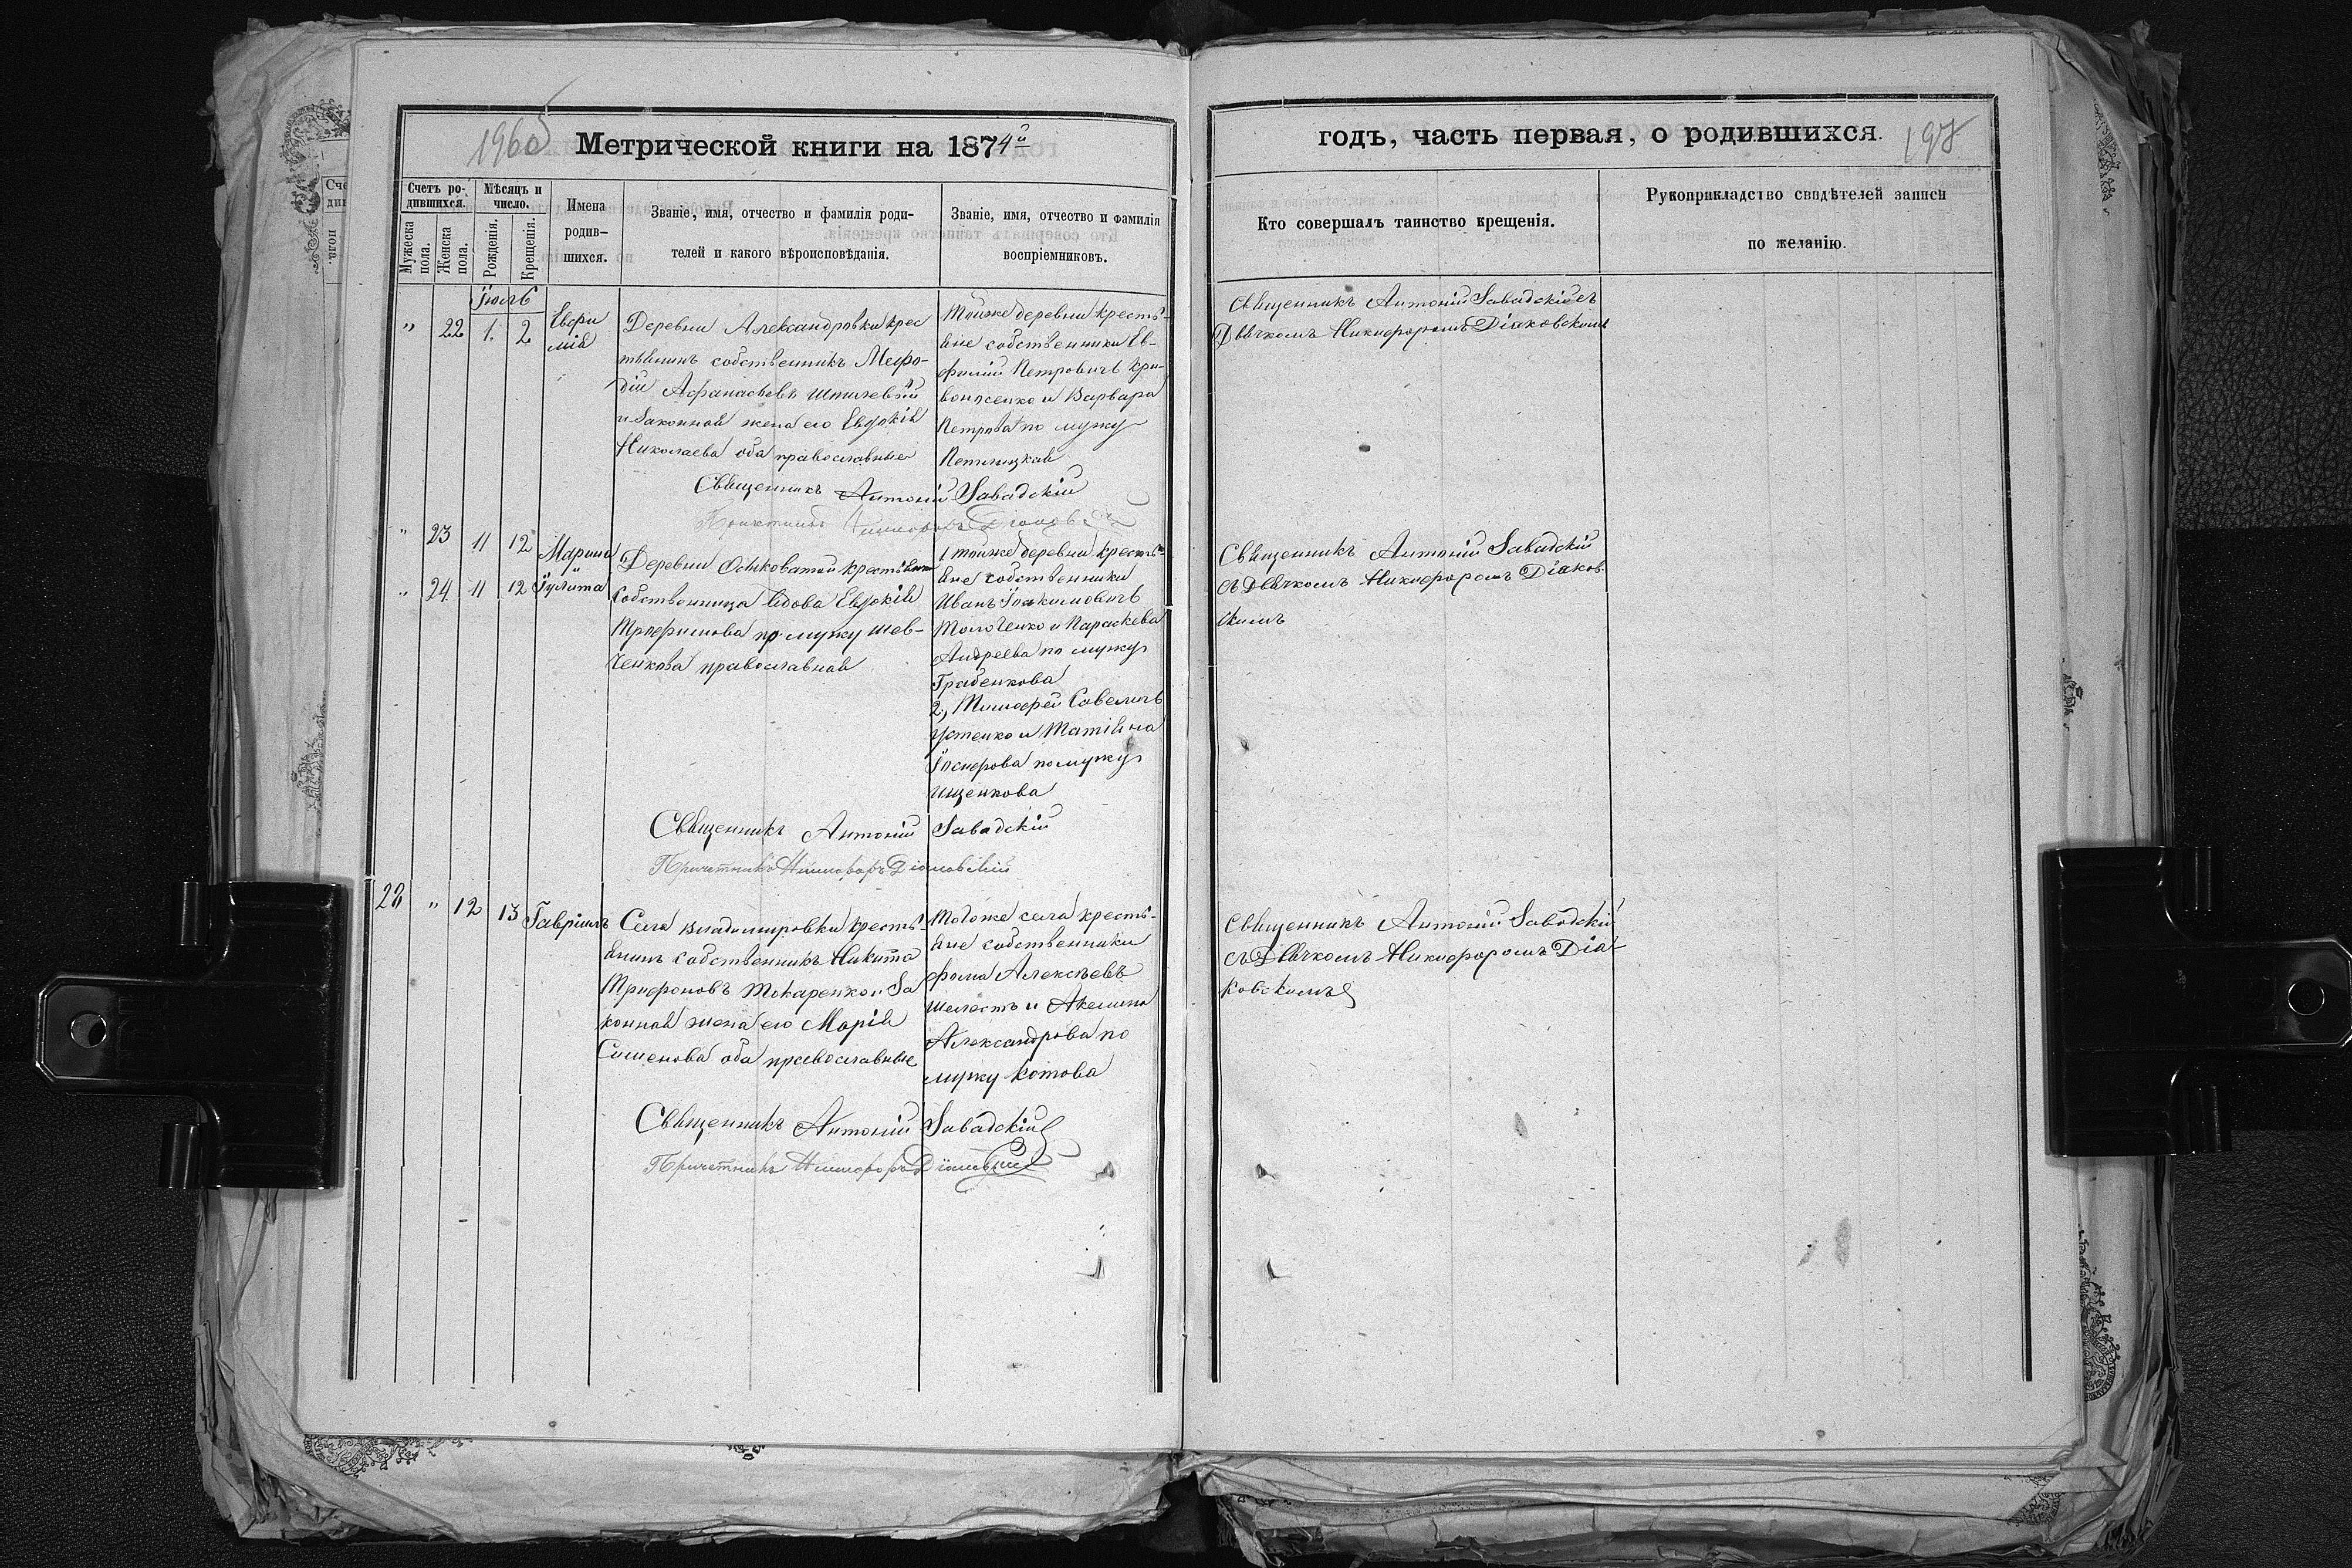 196об
Метрической книги на 1874й
годъ, часть первая, о родившихся.
197
Счетъ родившихся.
Мѣсяцъ и число.
Имена родившихся.
Званіе, имя, отчество и фамилія родителей и какого вѣроисповѣданія.
Званіе, имя, отчество и фамилія воспріемниковъ.
Мужеска пола.
Женска пола.
Рожденія.
Крещенія.
Кто совершалъ таинство крещенія.
Рукоприкладство свидѣтелей записи
по желанію.
Іюль
" 22 1. 2 Евфи
мія
Деревни Александровки крес
тьянинъ собственникъ Мефо-
дій Афанасьевъ
и законная жена его Евдокія
Николаева оба православные
Тойже деревни кресть-
яне собственники Ев-
фимій Петровичъ Кри-
и Варвара
Петрова по мужу
Священникъ Антоній Завадскій съ
Дьячкомъ Никифоромъ Діаковскимъ
Священникъ Антоній Завадскій
Причетникъ Никифоръ Діаковскій
" 23 11 12 Марина
" 24 11 12 Іулита
Деревни Осиковатой крестьянка
собственница вдова Евдокія
Трофимова по мужу Шев-
ченкова православная
1 тойже деревни кресть-
яне собственники
Иванъ Іоакимовичъ
Толоченко и Параскева
Андреева по мужу
Грабенкова
2, Тимофей Савеличъ
Устенко и Татіяна
Іосифова по мужу
Ищенкова
Священникъ Антоній Завадскій
съ Дьячкомъ Никифоромъ Діаков
скимъ
Священникъ Антоній Завадскій
Причетникъ Никифоръ Діаковскій
28 " 12 13 Гавріилъ
Села Владимировки кресть-
янинъ собственникъ Никита
Трифоновъ Токаренко и за
конная жена его Марія
Сименова оба православные
Тогоже села кресть-
яне собственники
Фома Алексѣевъ
Шелестъ и Акелина
Александрова по
мужу Котова
Священникъ Антоній Завадскій
съ Дьячкомъ Никифоромъ Діа-
ковскимъ
Священникъ Антоній Завадскій
Причетникъ Никифоръ Діаковскій